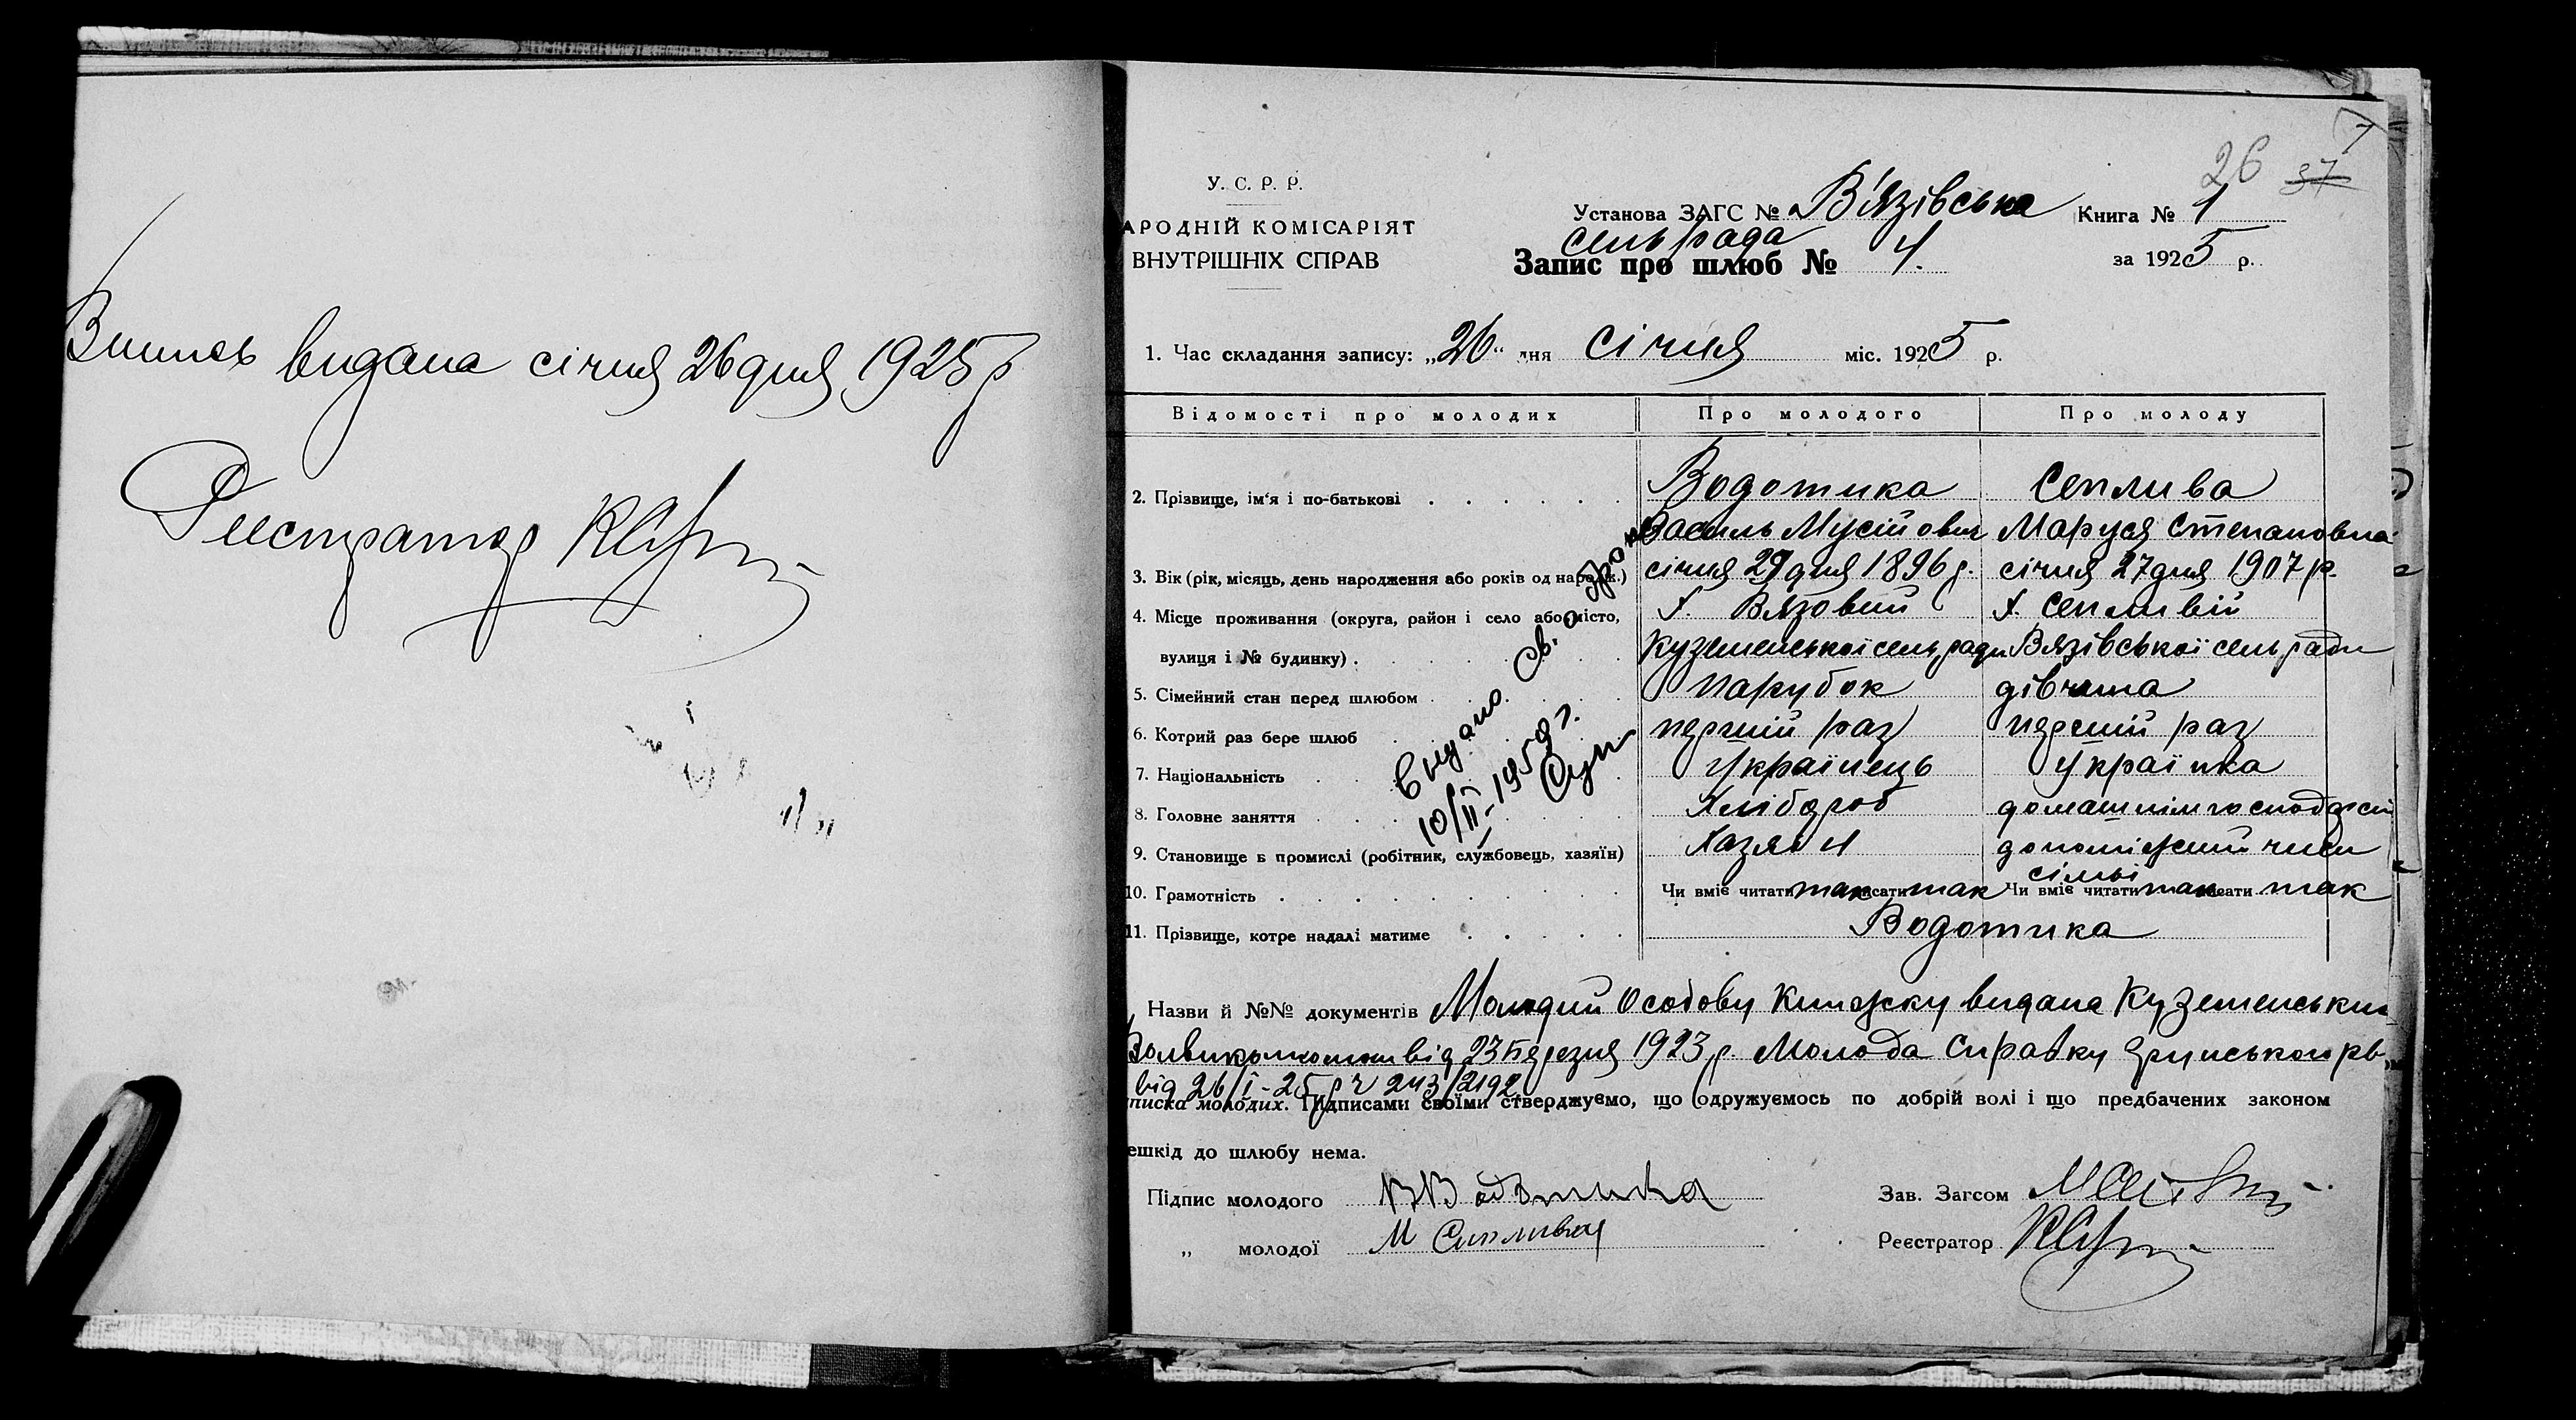 Випись видана січня 26 дня 1925 р
Реєстратор
26 37
У. С. Р. Р.
АРОДНІЙ КОМІСАРІЯТ
ВНУТРІШНІХ СПРАВ
Установа ЗАГС № В'язівська Книга № 1
сельрада
Запис про шлюб № 4. за 1925 р.
1. Час складання запису: „26" дня Січня міс. 1925 р.
Відомості про молодих Про молодого Про молоду
2. Прізвище, ім'я і по-батькові Водотика Сеплива
Василь Мусійович Маруся Степановна
3. Вік (рік, місяць, день народження або років од народж.) січня 29 дня 1896 р. січня 27 дня 1907 р.
4. Місце проживання (округа, район і село або місто, Х. Вязовий Х. Сепливій
вулиця і № будинку) Куземенської сельради Вязівської сельради
5. Сімейний стан перед шлюбом парубок дівчина
6. Котрий раз бере шлюб перший раз перший раз
7. Національність Українець Українка
8. Головне заняття Хлібороб домашнім
9. Становище в промислі (робітник, службовець, хазяїн) Хазяїн
сімьї
10. Грамотність Чи вміє читати так писати так Чи вміє читати так писати так
11. Прізвище, котре надалі матиме Водотика
Выдано св. о
10/II-1959 г.
Назви й №№ документів Молодий Особову Книжку видана Куземенським
від 23 березня 1923 р. Молода Справку
від 26/I-25 р ч 243/2192
писка молодих. Підписами своїми стверджуємо, що одружуємось по добрій волі і що предбачених законом
ешкід до шлюбу нема.
Підпис молодого В Водотика Зав. Загсом
„ молодої М Сиплива Реєстратор